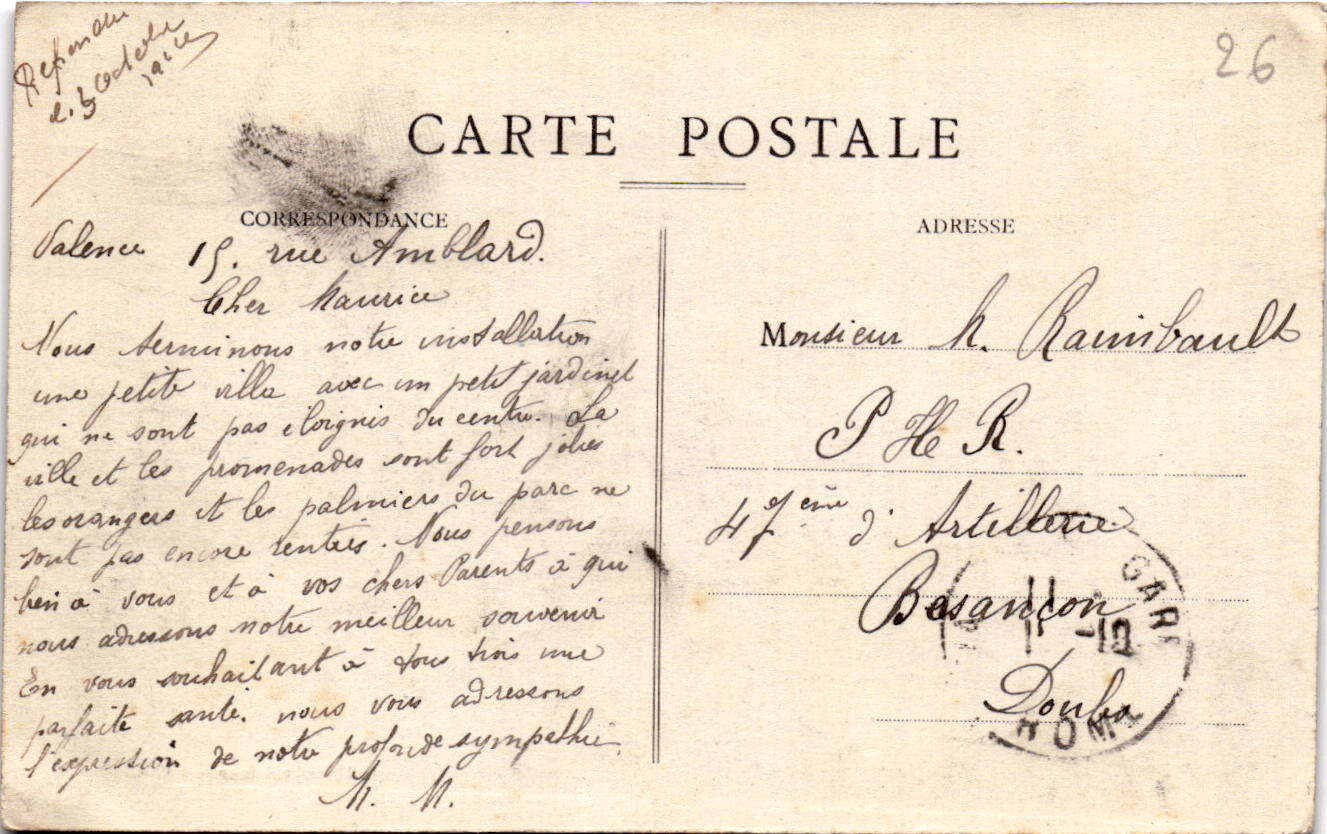 Répondu
le 3 Octobre
26
CARTE POSTALE
CORRESPONDANCE
Valence 15. rue Amblard.
Cher Maurice
Nous terminons notre installation
une petite villa avec un petit jardinet
qui ne sont pas éloignés du centre. La
ville et les promenades sont fort jolies
les orangers et les palmiers du parc ne
sont pas encore rentrés. Nous pensons
bien à vous et à vos chers Parents à qui
nous adressons notre meilleur souvenir
En vous souhaitant à tous trois une
parfaite santé. nous vous adressons
l'expression de notre profonde sympathie.
M. M.
ADRESSE
Monsieur M. Raimbault
P H R.
47ème d'Artillerie
Besançon
Doubs
GARE
11
11 -10